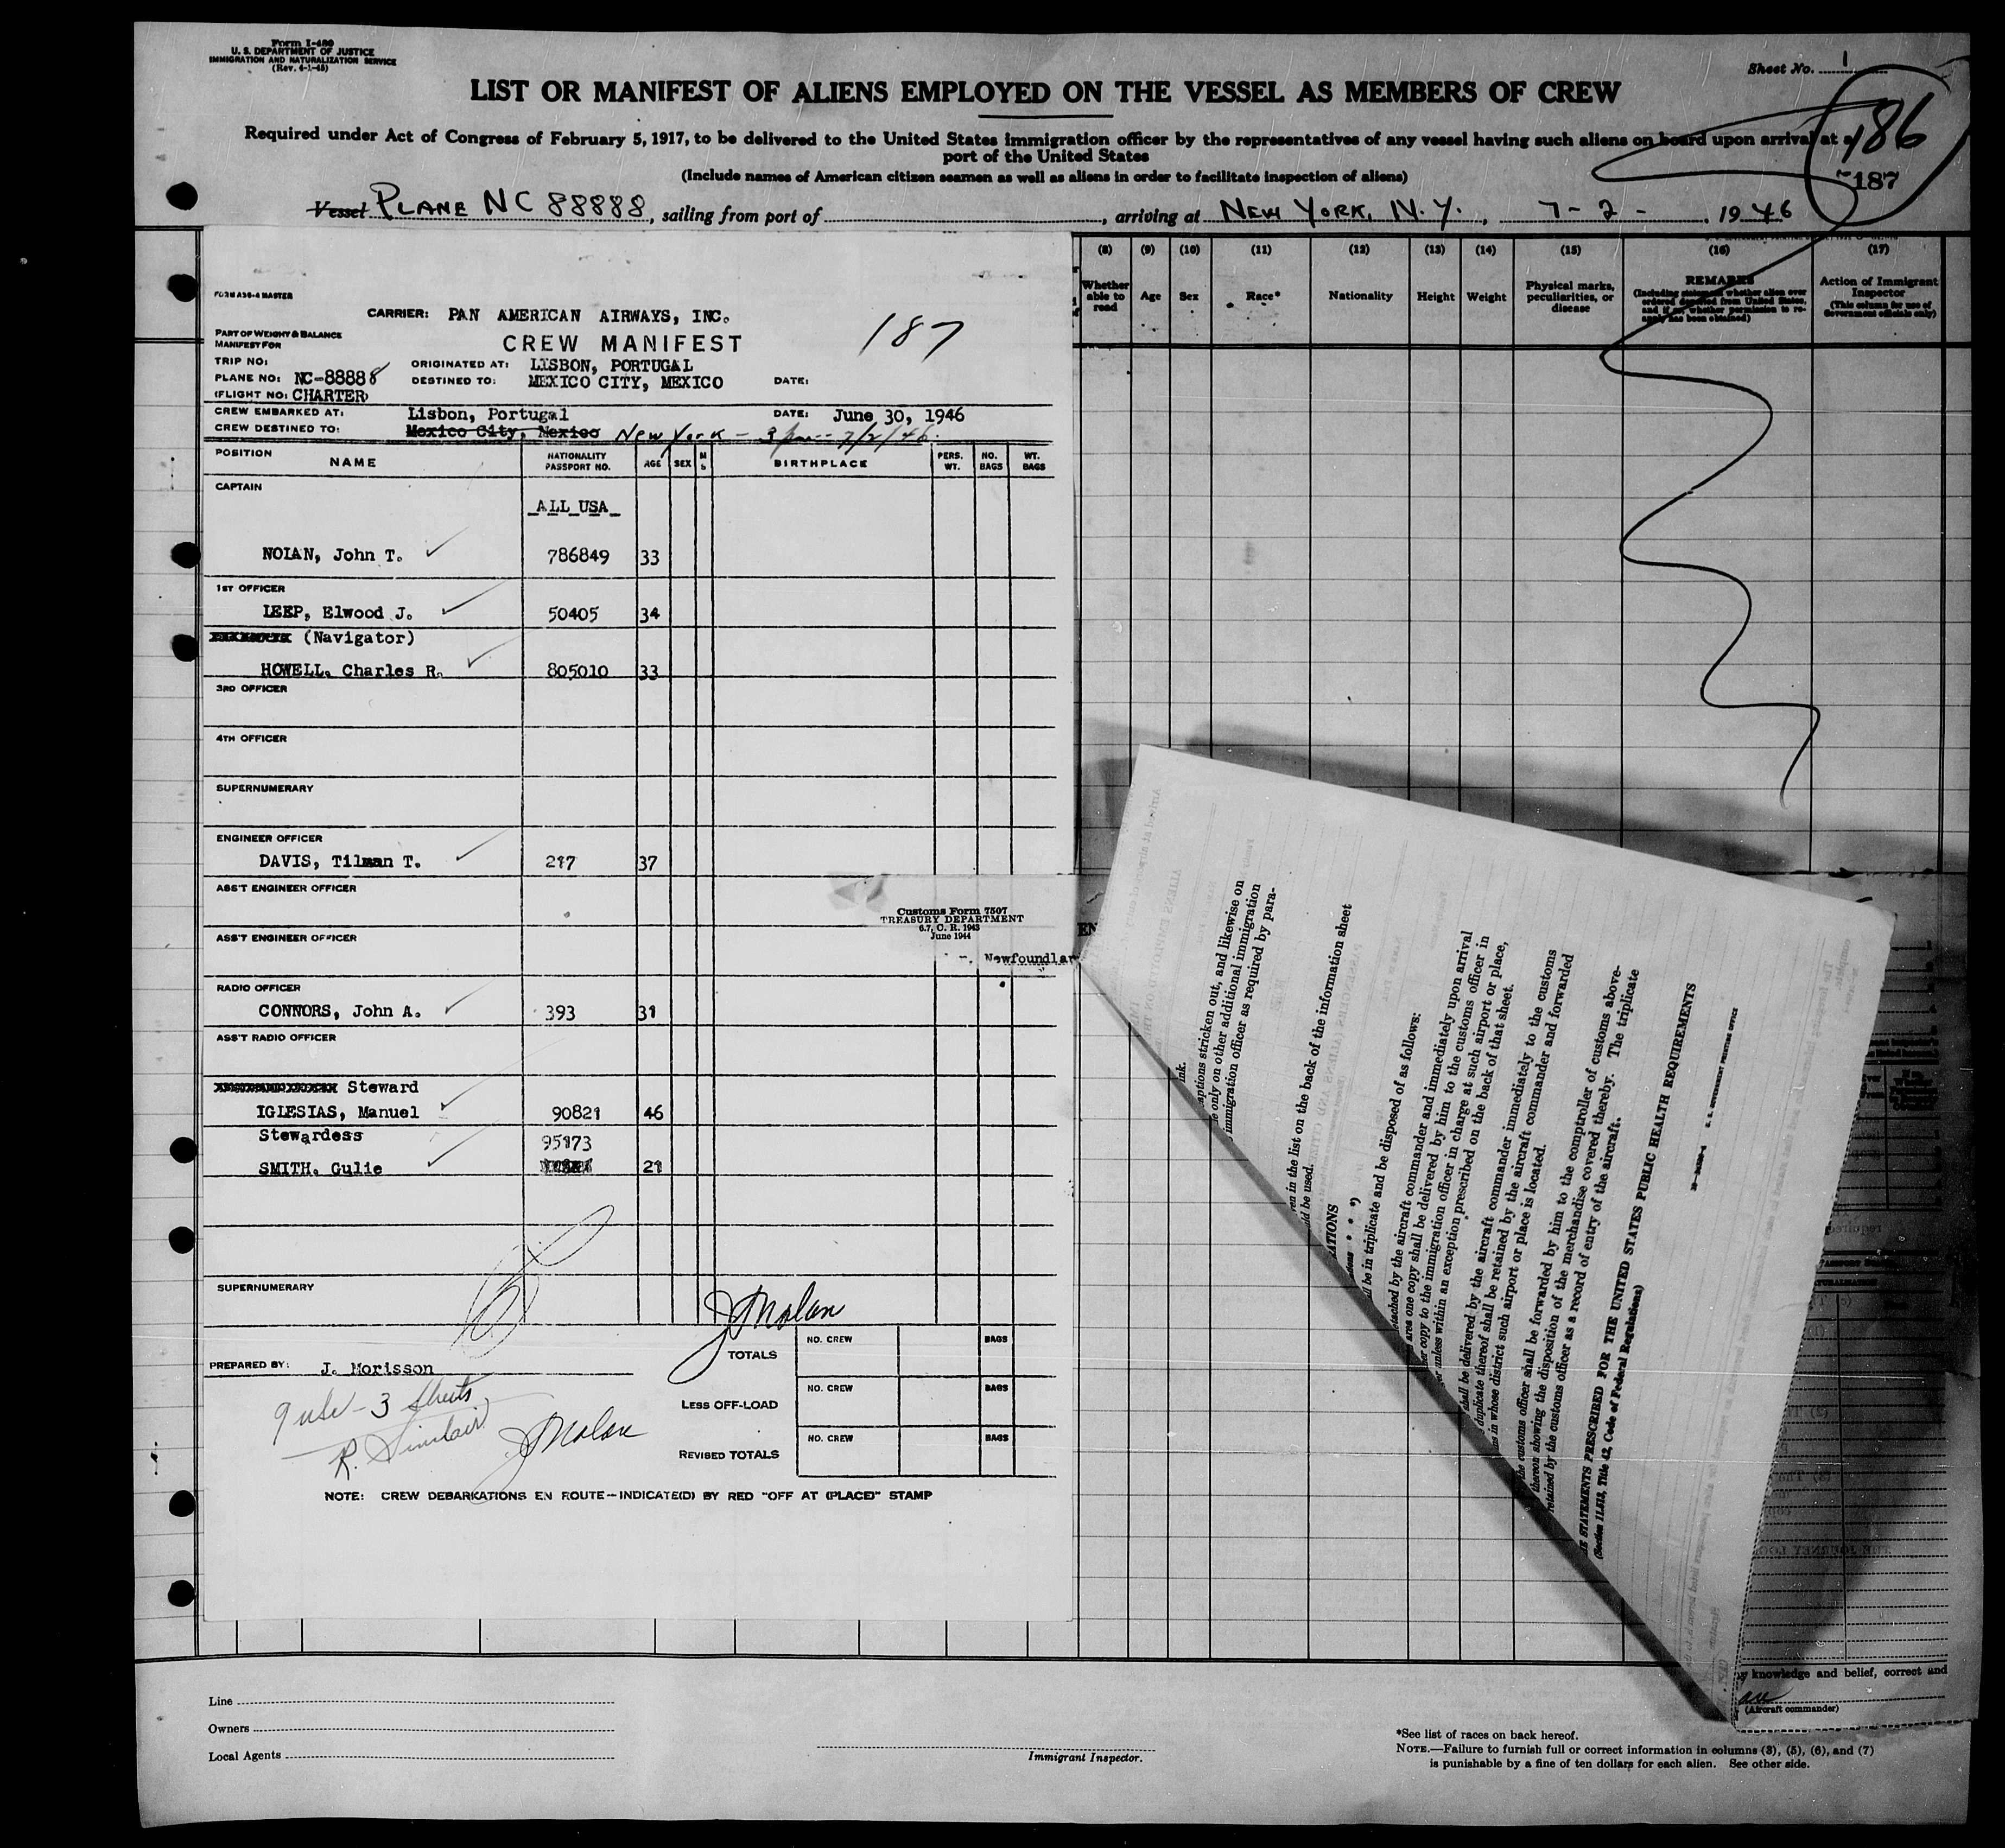 Form I-480
U. S. DEPARTMENT OF JUSTICE
IMMIGRATION AND NATURALIZATION SERVICE
(Rev. 4-1-45)
Sheet No. 1
LIST OR MANIFEST OF ALIENS EMPLOYED ON THE VESSEL AS MEMBERS OF CREW
Required under Act of Congress of February 5, 1917, to be delivered to the United States immigration officer by the representatives of any vessel having such aliens on board upon arrival at a
port of the United States
186
187
(Include names of American citizen seamen as well as aliens in order to facilitate inspection of aliens)
Vessel PLANE NC 88888, sailing from port of , arriving at NEW YORK, N.Y. , 7-2- , 1946
(8) (9) (10) (11) (12) (13) (14) (15) (16) (17)
Whether able to read
Age
Sex
Race*
Nationality
Height
Weight
Physical marks, peculiarities, or disease
REMARKS
(Including statement whether alien ever ordered deported from United States, and if so, whether permission to reapply has been obtained)
Action of Immigrant Inspector
(This column for use of Government officials only)
FORM A36-4 MASTER
CARRIER: PAN AMERICAN AIRWAYS, INC.
PART OF WEIGHT & BALANCE
MANIFEST FOR
CREW MANIFEST
187
TRIP NO: ORIGINATED AT: LISBON, PORTUGAL
PLANE NO: NC-88888 DESTINED TO: MEXICO CITY, MEXICO DATE:
(FLIGHT NO: CHARTER)
CREW EMBARKED AT: Lisbon, Portugal DATE: June 30, 1946
CREW DESTINED TO: Mexico City, Mexico New York - 3 pm - 7/2/46.
POSITION NAME NATIONALITY PASSPORT NO. AGE SEX M S BIRTHPLACE PERS. WT. NO. BAGS WT. BAGS
CAPTAIN
ALL USA
NOLAN, John T. 786849 33
1ST OFFICER
LEEP, Elwood J. 50405 34
(Navigator)
HOWELL, Charles R. 805010 33
3RD OFFICER
4TH OFFICER
SUPERNUMERARY
ENGINEER OFFICER
DAVIS, Tilman T. 217 37
ASS'T ENGINEER OFFICER
Customs Form 7507
TREASURY DEPARTMENT
6.7, C. R. 1943
June 1944
ASS'T ENGINEER OFFICER
Newfoundlan
RADIO OFFICER
CONNORS, John A. 393 31
ASS'T RADIO OFFICER
Steward
IGLESIAS, Manuel 90821 46
Stewardess 95173
SMITH, Gulie 21
SUPERNUMERARY
J Nolan
NO. CREW BAGS
TOTALS
PREPARED BY: J. Morisson
NO. CREW BAGS
LESS OFF-LOAD
9 use - 3 Sheets
R. Sinclair
J Nolan
NO. CREW BAGS
REVISED TOTALS
NOTE: CREW DEBARKATIONS EN ROUTE—INDICATE(D) BY RED "OFF AT (PLACE)" STAMP
ink.
aptions stricken out, and likewise on
e only on other additional immigration
immigration officer as required by para-
en in the list on the back of the information sheet
uld be used.
ATIONS
ll be in triplicate and be disposed of as follows:
etached by the aircraft commander and immediately upon arrival
area one copy shall be delivered by him to the customs officer in
er copy to the immigration officer in charge at such airport or place,
unless within an exception prescribed on the back of that sheet.
shall be delivered by the aircraft commander immediately to the customs
duplicate thereof shall be retained by the aircraft commander and forwarded
ms in whose district such airport or place is located.
the customs officer shall be forwarded by him to the comptroller of customs above-
thereon showing the disposition of the merchandise covered thereby. The triplicate
retained by the customs officer as a record of entry of the aircraft.
HE STATEMENTS PRESCRIBED FOR THE UNITED STATES PUBLIC HEALTH REQUIREMENTS
(Section 11.513, Title 42, Code of Federal Regulations)
U. S. GOVERNMENT PRINTING OFFICE
y knowledge and belief, correct and
(Aircraft commander)
Line
Owners
Local Agents
Immigrant Inspector.
*See list of races on back hereof.
NOTE.—Failure to furnish full or correct information in columns (3), (5), (6), and (7)
is punishable by a fine of ten dollars for each alien. See other side.